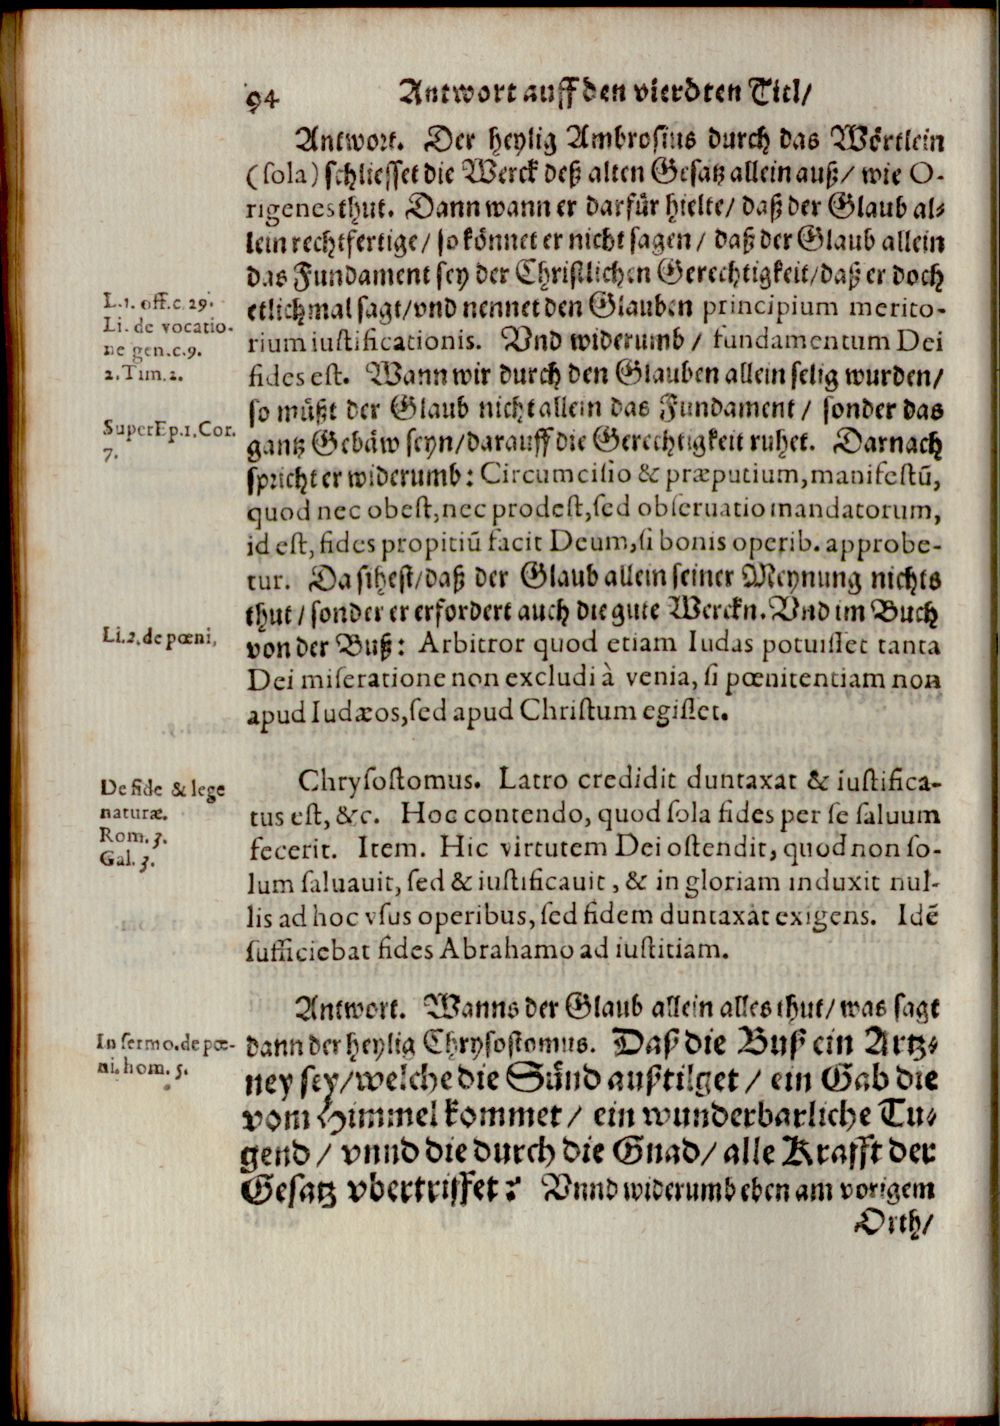 94 Antwort auff den vierdten Titl/
Antwort. Der heylig Ambrosius durch das Wörtlein
(sola) schliesset die Werck deß alten Gesatz allein auß/ wie O-
rigenes thut. Dann wann er darfür hielte/ daß der Glaub al-
lein rechtfertige/ so könnet er nicht sagen/ daß der Glaub allein
das Fundament sey der Christlichen Gerechtigkeit/daß er doch
L.1. off.c.29.
etlichmal sagt/vnd nennet den Glauben principium merito-
Li. de vocatio-
rium iustificationis. Vnd widerumb/ fundamentum Dei
ne gen.c.9.
2.Tim.2.
fides est. Wann wir durch den Glauben allein selig wurden/
so müßt der Glaub nicht allein das Fundament/ sonder das
SuperEp.1.Cor.
7.
gantz Gebäw seyn/darauff die Gerechtigkeit ruhet. Darnach
spricht er widerumb: Circumcisio & præputium, manifestũ,
quod nec obest, nec prodest, sed obseruatio mandatorum,
id est, fides propitiũ facit Deum, si bonis operib. approbe-
tur. Da sihest/daß der Glaub allein seiner Meynung nichts
thut/sonder er erfordert auch die gute Werckn. Vnd im Buch
Li.2.de pœni,
von der Buß: Arbitror quod etiam Iudas potuisset tanta
Dei miseratione non excludi à venia, si pœnitentiam non
apud Iudæos, sed apud Christum egisset.
De fide & lege
naturæ.
Rom. 3.
Gal. 3.
Chrysostomus. Latro credidit duntaxat & iustifica-
tus est, &c. Hoc contendo, quod sola fides per se saluum
fecerit. Item. Hic virtutem Dei ostendit, quod non so-
lum saluauit, sed & iustificauit, & in gloriam induxit nul-
lis ad hoc vsus operibus, sed fidem duntaxat exigens. Idẽ
sufficiebat fides Abrahamo ad iustitiam.
Antwort. Wanns der Glaub allein alles thut/was sagt
In sermo.de pœ-
ni. hom. 5.
dann der heylig Chrysostomus. Daß die Buß ein Artz-
ney sey/welche die Sünd außtilget/ ein Gab die
vom Himmel kommet/ ein wunderbarliche Tu-
gend/ vnnd die durch die Gnad/ alle Krafft der
Gesatz vbertriffet? Vnnd widerumb eben am vorigem
Orth/